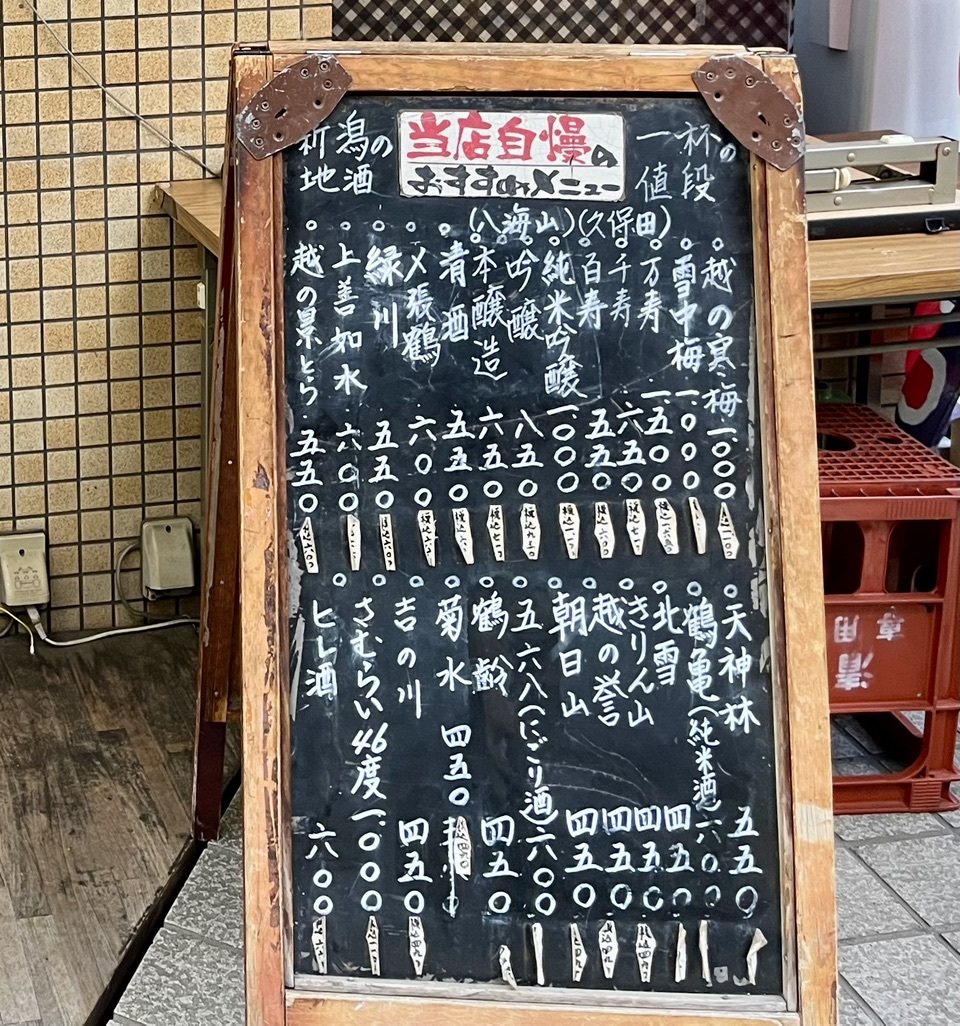 新潟の
地酒
当店自慢の
おすすめメニュー
一杯の
値段
越の寒梅 一、〇〇〇
雪中梅 一、〇〇〇
(久保田)
万寿 一、五〇〇
千寿 六五〇
百寿 五五〇
(八海山)
純米吟醸 一、〇〇〇
吟醸 八五〇
本醸造 六五〇
清酒 五五〇
〆張鶴 六〇〇
緑川 五五〇
上善如水 六〇〇
越の景とら 五五〇
天神林 五五〇
鶴亀(純米酒) 六〇〇
北雪 四五〇
きりん山 四五〇
越の誉 四五〇
朝日山 四五〇
五六八(にごり酒) 六〇〇
鶴齢 四五〇
菊水 四五〇
吉の川 四五〇
さむらい46度 一、〇〇〇
ヒレ酒 六〇〇
専用
清